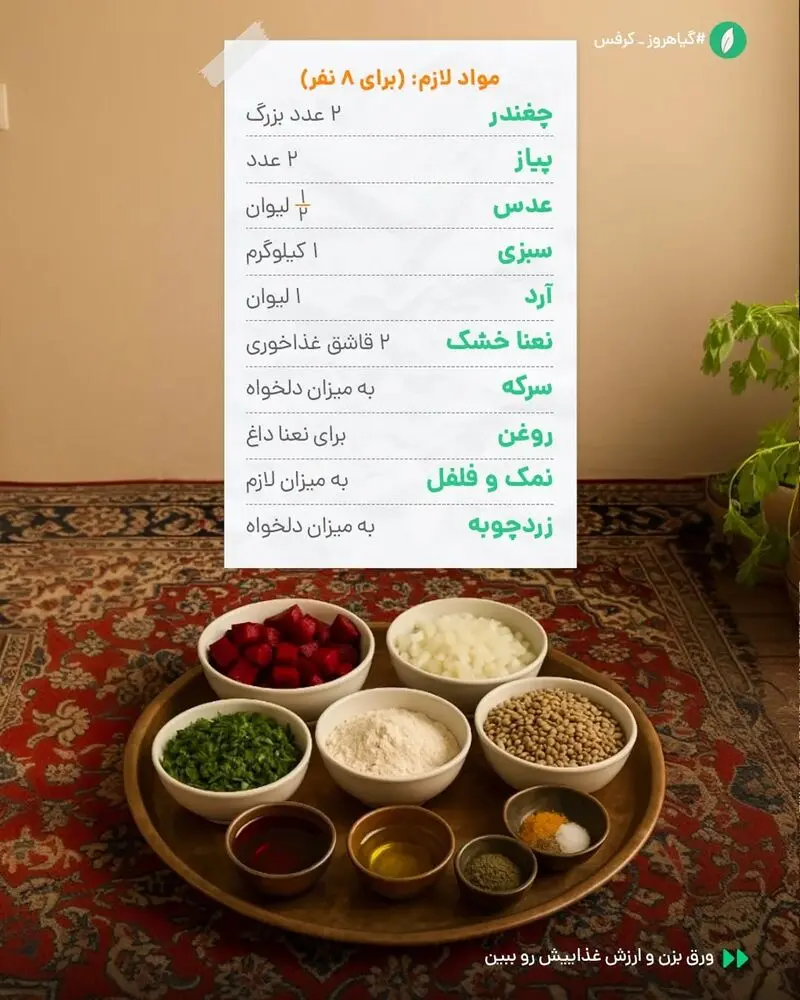 #گیاهروز_کرفس
مواد لازم: (برای ۸ نفر)
چغندر ۲ عدد بزرگ
پیاز ۲ عدد
عدس ۱/۲ لیوان
سبزی ۱ کیلوگرم
آرد ۱ لیوان
نعنا خشک ۲ قاشق غذاخوری
سرکه به میزان دلخواه
روغن برای نعنا داغ
نمک و فلفل به میزان لازم
زردچوبه به میزان دلخواه
ورق بزن و ارزش غذاییش رو ببین